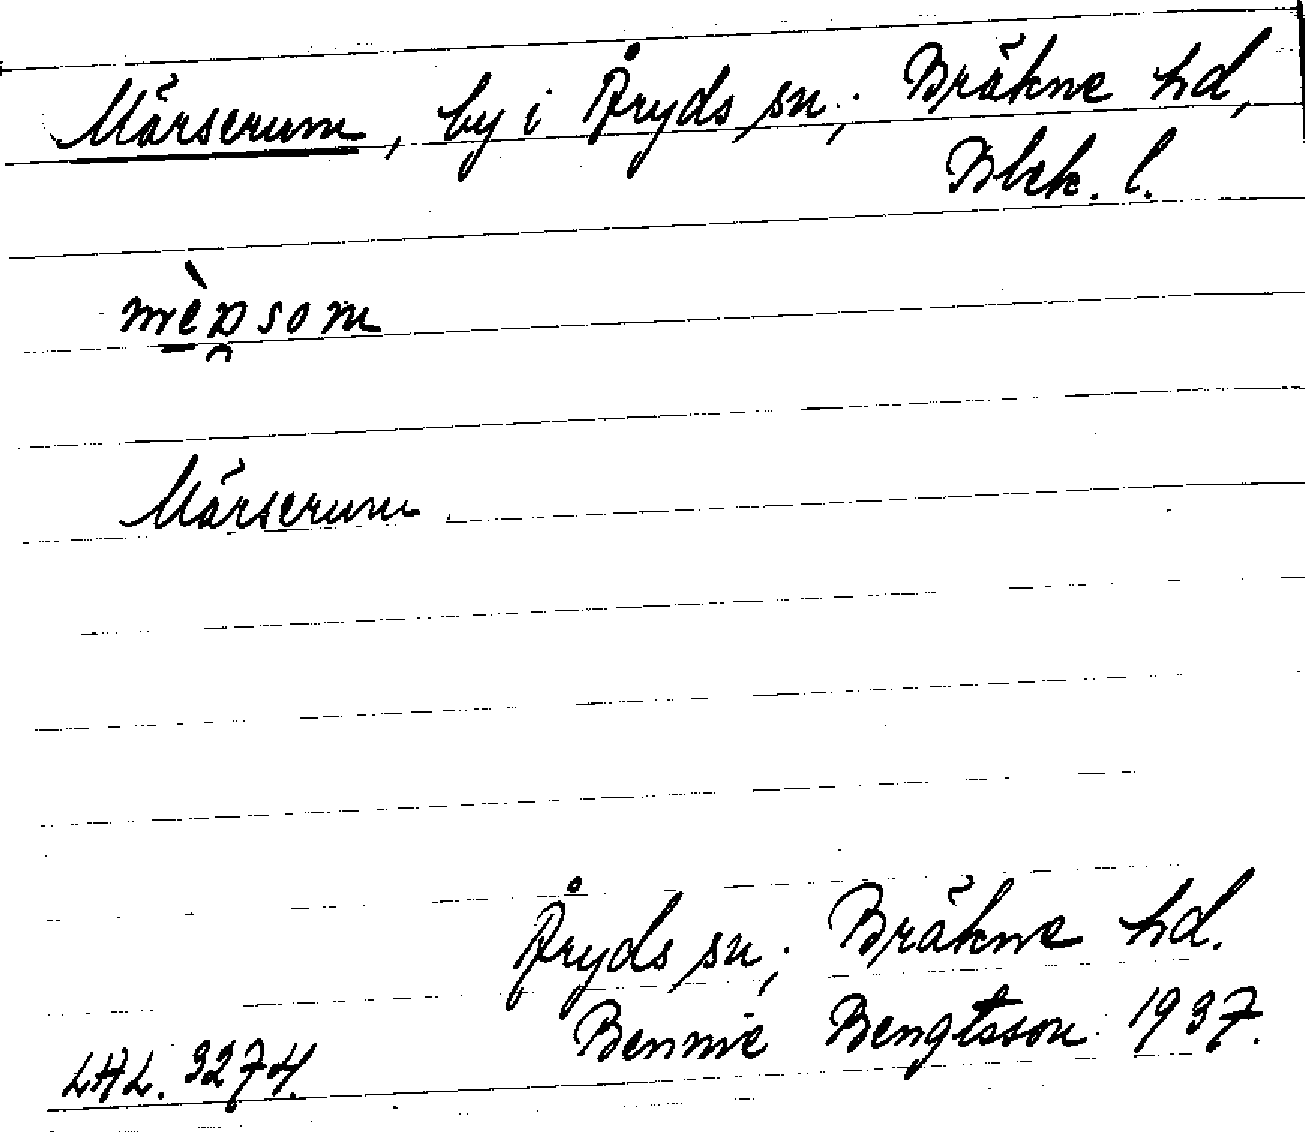 Märserum, by i Åryds sn; Bräkne hd,
Blek. l.
Märserum
Åryds sn; Bräkne hd.
Bennie Bengtsson 1937.
LAL. 3274.